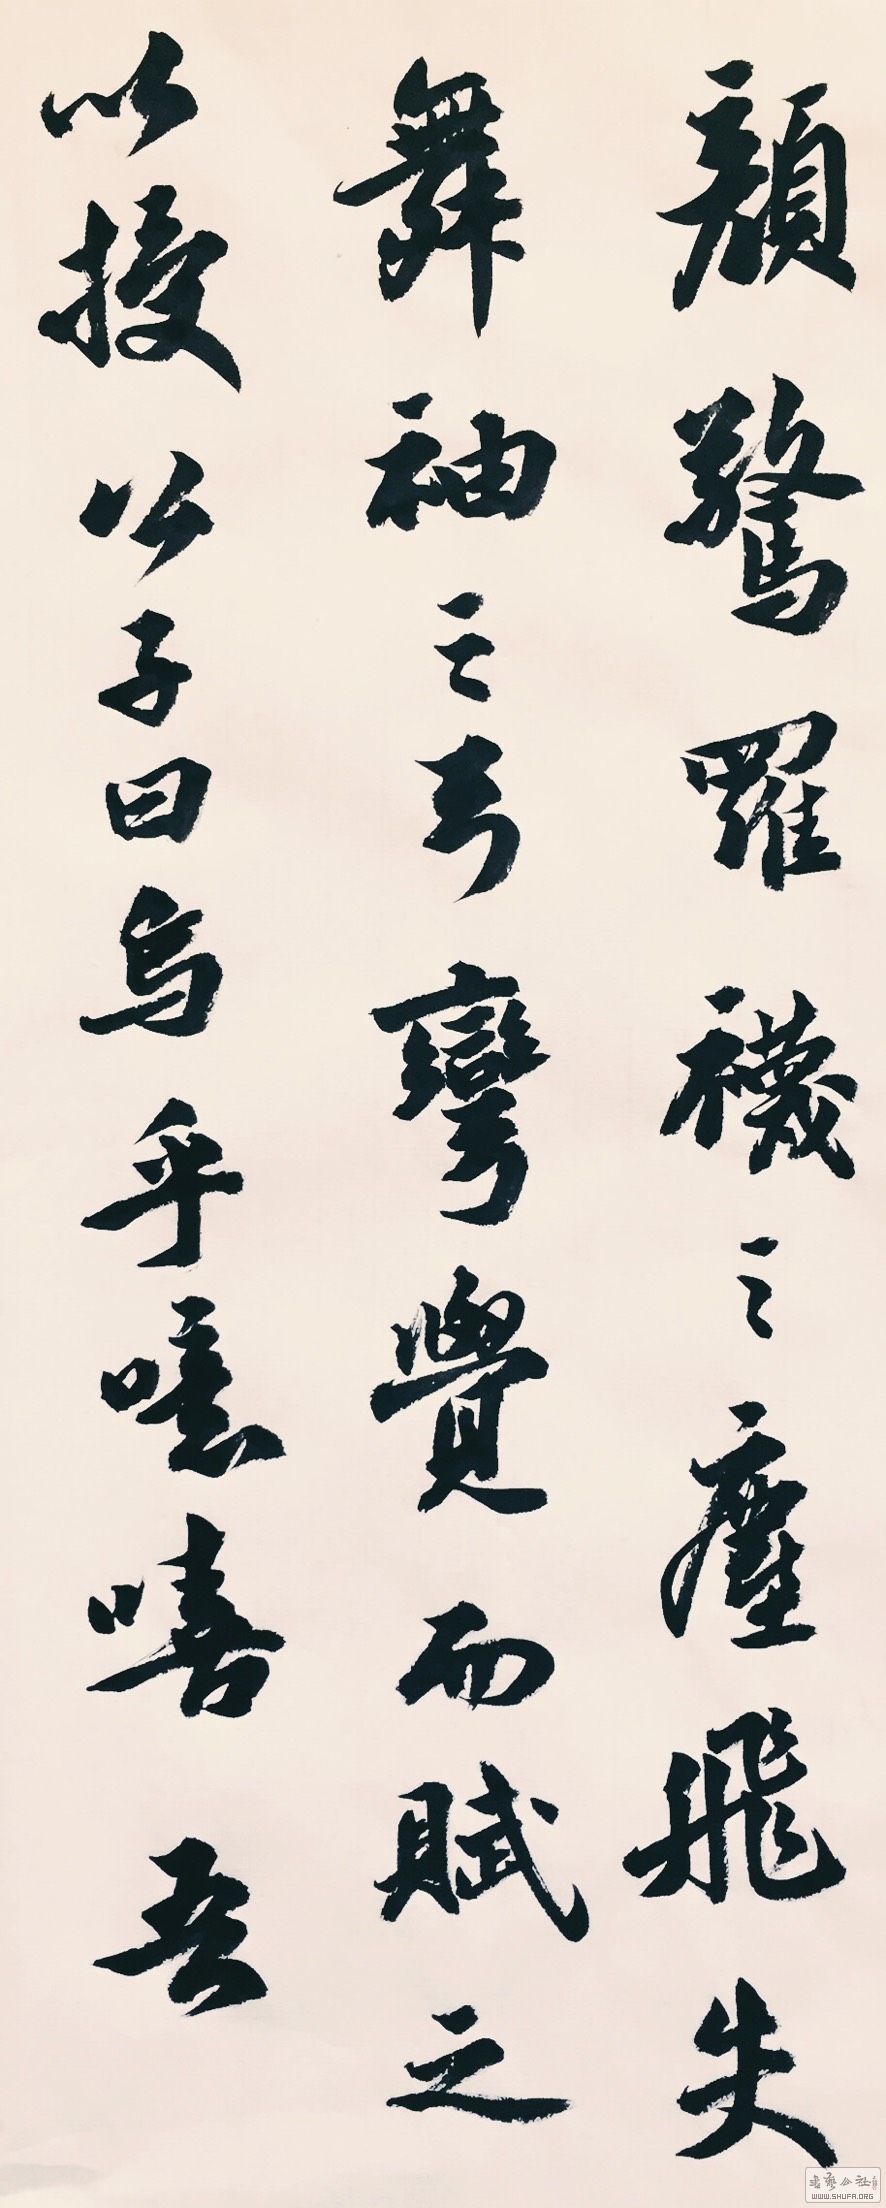 顏驚羅襪之塵飛失
舞袖之弓彎覺而賦之
以授公子曰烏乎噫嘻吾
書藝公社
WWW.SHUFA.ORG